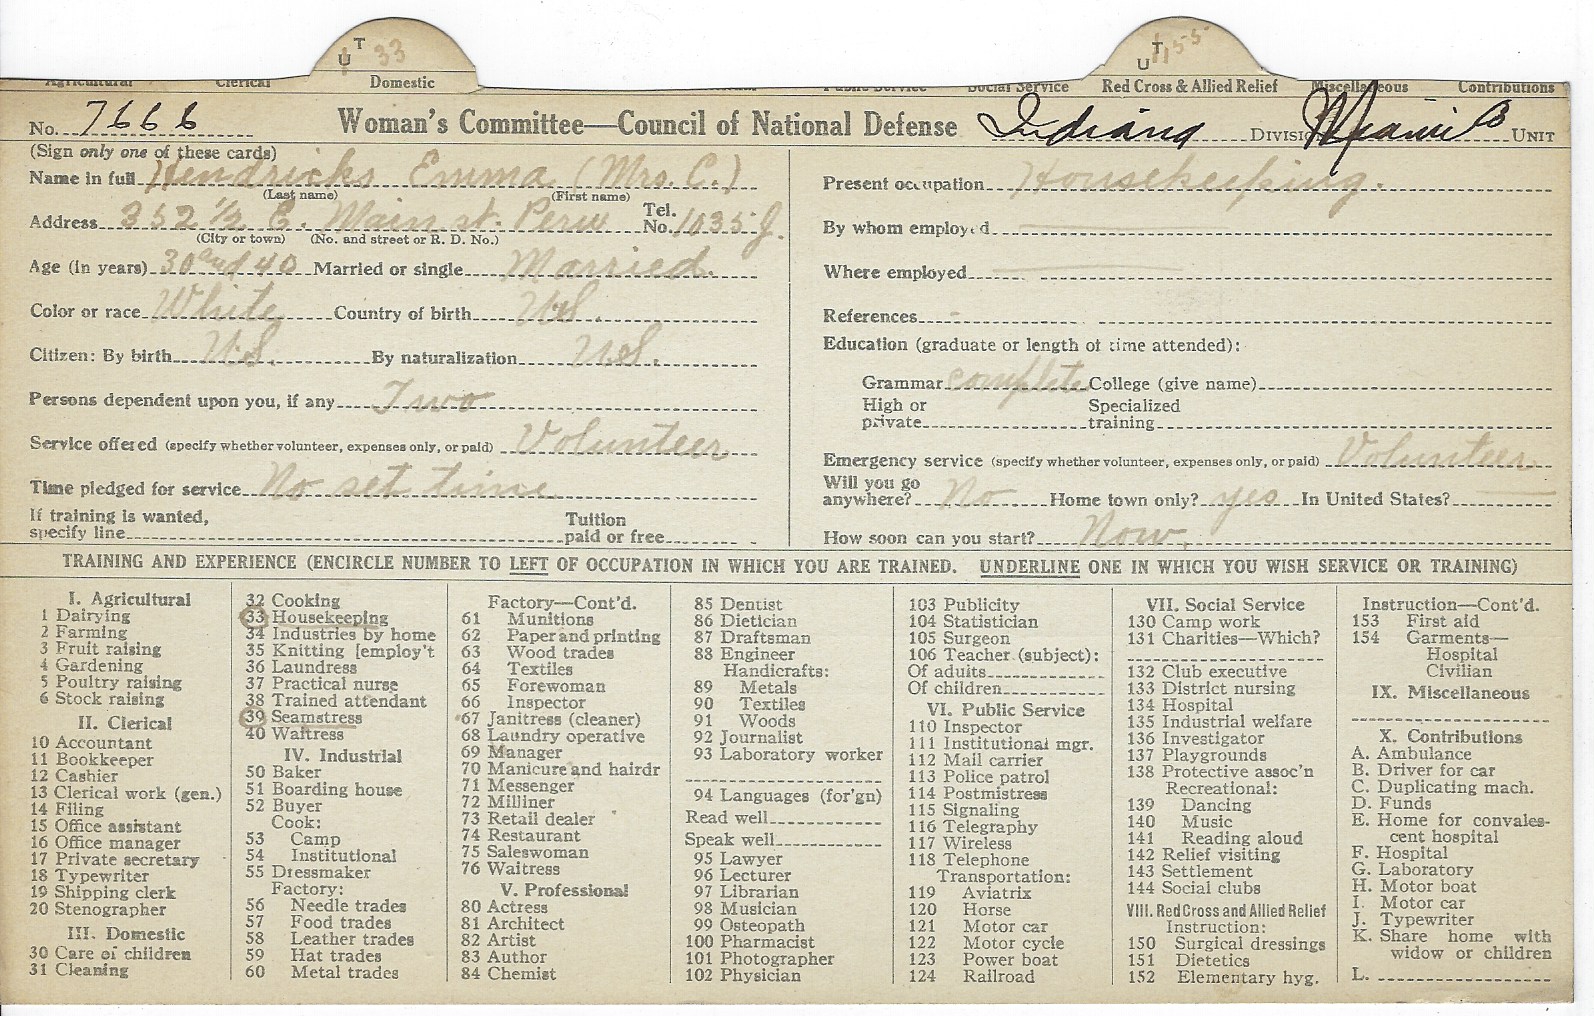 U T 33
U T 155
Agricultural Clerical Domestic Public Service Social Service Red Cross & Allied Relief Miscellaneous Contributions
No. 7666 Woman's Committee—Council of National Defense Indiana DIVISION Miami B UNIT
(Sign only one of these cards)
Name in full Hendricks Emma (Mrs. C.)
(Last name) (First name)
Address 352 1/2 E. Main st. Peru Tel. No. 1035 J.
(City or town) (No. and street or R. D. No.)
Age (in years) 30 and 40 Married or single Married.
Color or race White Country of birth U.S.
Citizen: By birth U.S. By naturalization U.S.
Persons dependent upon you, if any Two
Service offered (specify whether volunteer, expenses only, or paid) Volunteer
Time pledged for service No set time
If training is wanted, specify line Tuition paid or free
Present occupation Housekeeping.
By whom employed
Where employed
References
Education (graduate or length of time attended):
Grammar complete College (give name)
High or private Specialized training
Emergency service (specify whether volunteer, expenses only, or paid) Volunteer
Will you go anywhere? No Home town only? yes In United States?
How soon can you start? Now.
TRAINING AND EXPERIENCE (ENCIRCLE NUMBER TO LEFT OF OCCUPATION IN WHICH YOU ARE TRAINED. UNDERLINE ONE IN WHICH YOU WISH SERVICE OR TRAINING)
I. Agricultural
1 Dairying
2 Farming
3 Fruit raising
4 Gardening
5 Poultry raising
6 Stock raising
II. Clerical
10 Accountant
11 Bookkeeper
12 Cashier
13 Clerical work (gen.)
14 Filing
15 Office assistant
16 Office manager
17 Private secretary
18 Typewriter
19 Shipping clerk
20 Stenographer
III. Domestic
30 Care of children
31 Cleaning
32 Cooking
33 Housekeeping
34 Industries by home
35 Knitting [employ't
36 Laundress
37 Practical nurse
38 Trained attendant
39 Seamstress
40 Waitress
IV. Industrial
50 Baker
51 Boarding house
52 Buyer
Cook:
53 Camp
54 Institutional
55 Dressmaker
Factory:
56 Needle trades
57 Food trades
58 Leather trades
59 Hat trades
60 Metal trades
Factory—Cont'd.
61 Munitions
62 Paper and printing
63 Wood trades
64 Textiles
65 Forewoman
66 Inspector
67 Janitress (cleaner)
68 Laundry operative
69 Manager
70 Manicure and hairdr
71 Messenger
72 Milliner
73 Retail dealer
74 Restaurant
75 Saleswoman
76 Waitress
V. Professional
80 Actress
81 Architect
82 Artist
83 Author
84 Chemist
85 Dentist
86 Dietician
87 Draftsman
88 Engineer
Handicrafts:
89 Metals
90 Textiles
91 Woods
92 Journalist
93 Laboratory worker
94 Languages (for'gn)
Read well
Speak well
95 Lawyer
96 Lecturer
97 Librarian
98 Musician
99 Osteopath
100 Pharmacist
101 Photographer
102 Physician
103 Publicity
104 Statistician
105 Surgeon
106 Teacher (subject):
Of adults
Of children
VI. Public Service
110 Inspector
111 Institutional mgr.
112 Mail carrier
113 Police patrol
114 Postmistress
115 Signaling
116 Telegraphy
117 Wireless
118 Telephone
Transportation:
119 Aviatrix
120 Horse
121 Motor car
122 Motor cycle
123 Power boat
124 Railroad
VII. Social Service
130 Camp work
131 Charities—Which?
132 Club executive
133 District nursing
134 Hospital
135 Industrial welfare
136 Investigator
137 Playgrounds
138 Protective assoc'n
Recreational:
139 Dancing
140 Music
141 Reading aloud
142 Relief visiting
143 Settlement
144 Social clubs
VIII. Red Cross and Allied Relief
Instruction:
150 Surgical dressings
151 Dietetics
152 Elementary hyg.
Instruction—Cont'd.
153 First aid
154 Garments—
Hospital
Civilian
IX. Miscellaneous
X. Contributions
A. Ambulance
B. Driver for car
C. Duplicating mach.
D. Funds
E. Home for convales-
cent hospital
F. Hospital
G. Laboratory
H. Motor boat
I. Motor car
J. Typewriter
K. Share home with
widow or children
L.